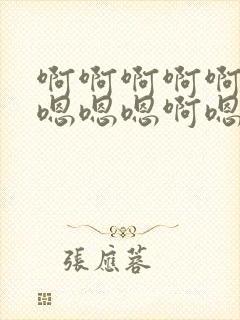 啊啊啊啊啊
嗯嗯嗯啊嗯
張應蓉